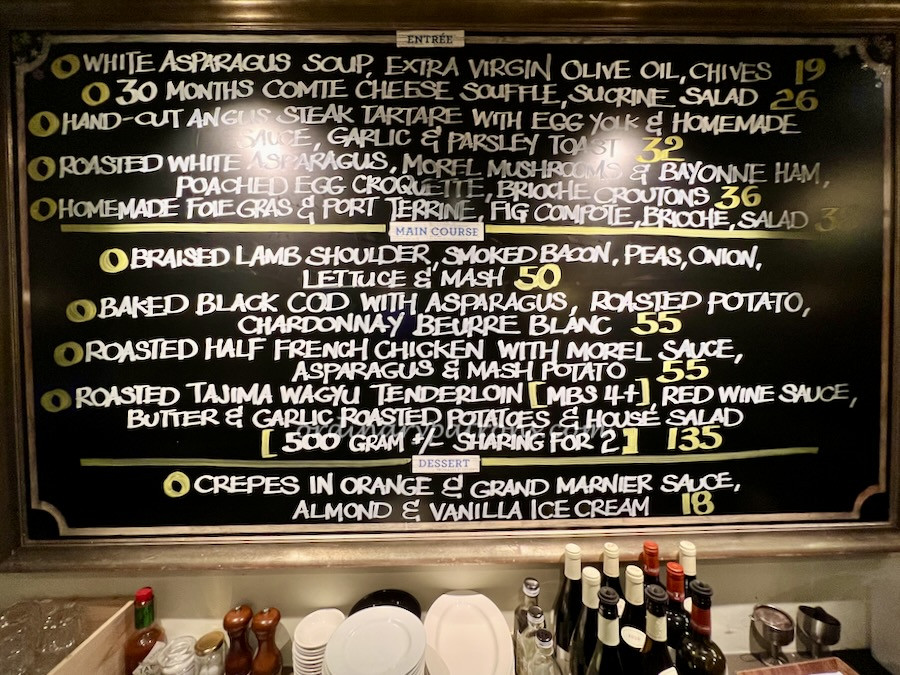 ENTRÉE
WHITE ASPARAGUS SOUP, EXTRA VIRGIN OLIVE OIL, CHIVES 19
30 MONTHS COMTE CHEESE SOUFFLE, SUCRINE SALAD 26
HAND-CUT ANGUS STEAK TARTARE WITH EGG YOLK & HOMEMADE
SAUCE, GARLIC & PARSLEY TOAST 32
ROASTED WHITE ASPARAGUS, MOREL MUSHROOMS & BAYONNE HAM,
POACHED EGG CROQUETTE, BRIOCHE CROUTONS 36
HOMEMADE FOIE GRAS & PORT TERRINE, FIG COMPOTE, BRIOCHE, SALAD
MAIN COURSE
BRAISED LAMB SHOULDER, SMOKED BACON, PEAS, ONION,
LETTUCE & MASH 50
BAKED BLACK COD WITH ASPARAGUS, ROASTED POTATO,
CHARDONNAY BEURRE BLANC 55
ROASTED HALF FRENCH CHICKEN WITH MOREL SAUCE,
ASPARAGUS & MASH POTATO 55
ROASTED TAJIMA WAGYU TENDERLOIN [MBS 4+], RED WINE SAUCE,
BUTTER & GARLIC ROASTED POTATOES & HOUSE SALAD
[500 GRAM +/- SHARING FOR 2] 135
DESSERT
CREPES IN ORANGE & GRAND MARNIER SAUCE,
ALMOND & VANILLA ICE CREAM 18